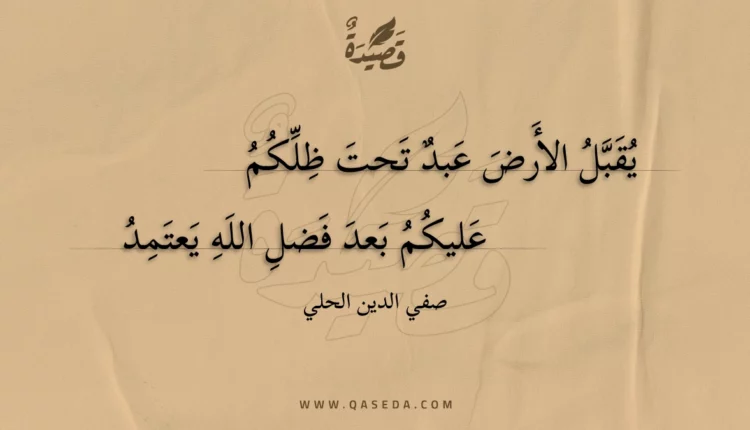 قَصِيدَةٌ
يُقَبَّلُ الأَرضَ عَبدٌ تَحتَ ظِلِّكُمُ
عَليكُمُ بَعدَ فَضلِ اللَهِ يَعتَمِدُ
صفي الدين الحلي
WWW.QASEDA.COM